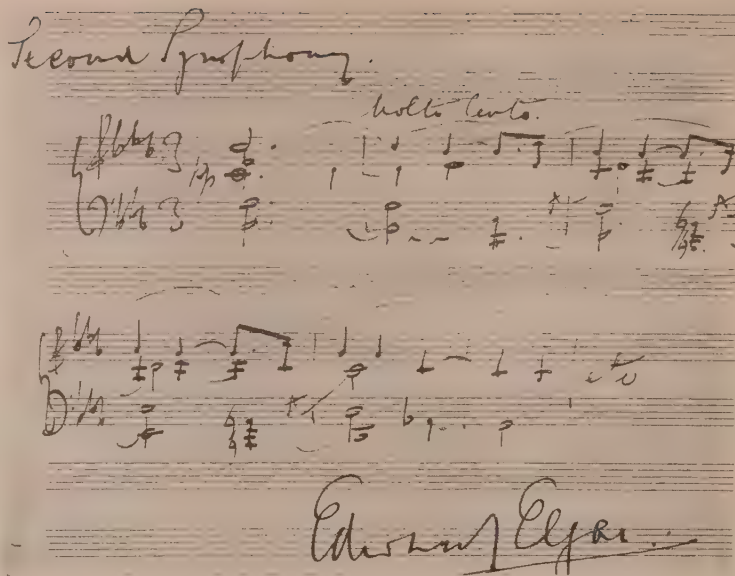 Second Symphony.
Molto lento.
pp
Edward Elgar.